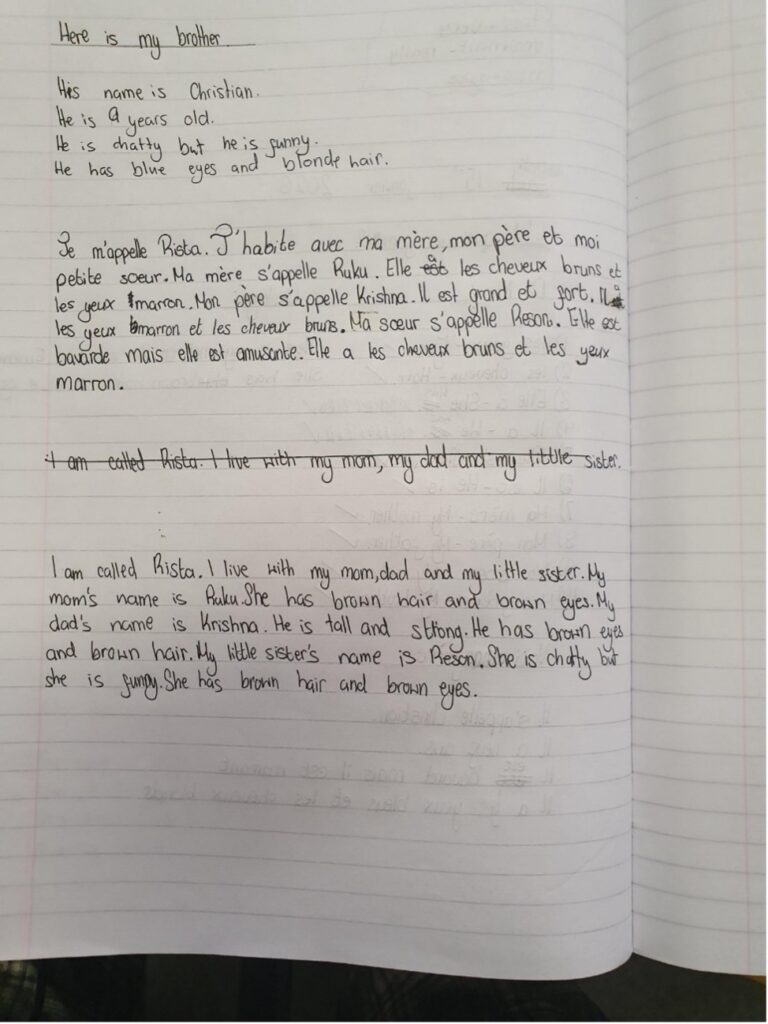 Here is my brother
His name is Christian.
He is 9 years old.
He is chatty but he is funny.
He has blue eyes and blonde hair.
Je m'appelle Rista. J'habite avec ma mère, mon père et moi
petite soeur. Ma mère s'appelle Ruku. Elle a les cheveux bruns et
les yeux marron. Mon père s'appelle Krishna. Il est grand et fort. Il a
les yeux marron et les cheveux bruns. Ma sœur s'appelle Reson. Elle est
bavarde mais elle est amusante. Elle a les cheveux bruns et les yeux
marron.
I am called Rista. I live with my mom, my dad and my little sister.
I am called Rista. I live with my mom, dad and my little sister. My
mom's name is Ruku. She has brown hair and brown eyes. My
dad's name is Krishna. He is tall and strong. He has brown eyes
and brown hair. My little sister's name is Reson. She is chatty but
she is funny. She has brown hair and brown eyes.